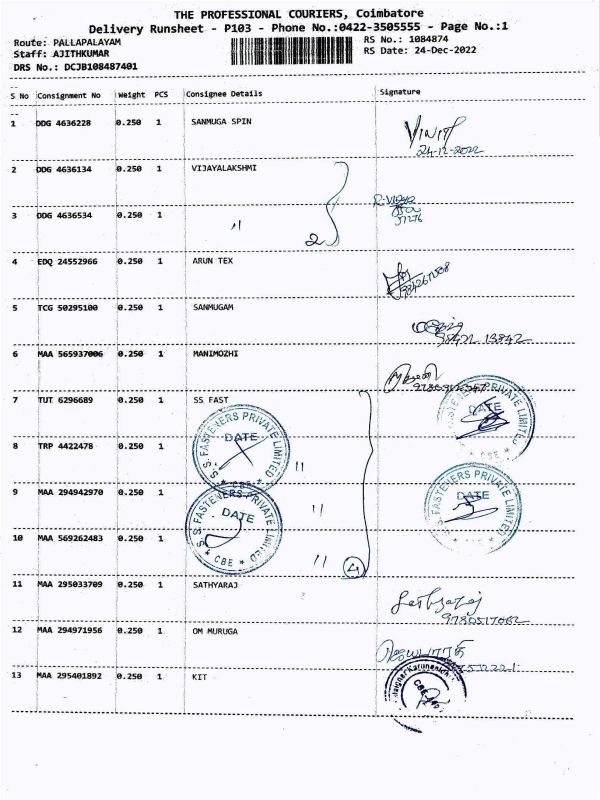 THE PROFESSIONAL COURIERS, Coimbatore
Delivery Runsheet - P103 - Phone No.:0422-3505555 - Page No.:1
Route: PALLAPALAYAM RS No.: 1084874
Staff: AJITHKUMAR RS Date: 24-Dec-2022
DRS No.: DCJB108487401
S No Consignment No Weight PCS Consignee Details Signature
1 DDG 4636228 0.250 1 SANMUGA SPIN
24-12-2022
2 DDG 4636134 0.250 1 VIJAYALAKSHMI
3 DDG 4636534 0.250 1 "
2
4 EDQ 24552966 0.250 1 ARUN TEX
5 TCG 50295100 0.250 1 SANMUGAM
98422 13842
6 MAA 565937006 0.250 1 MANIMOZHI
7 TUT 6296689 0.250 1 SS FAST
S.S. FASTENERS PRIVATE LIMITED
DATE
* CBE *
S.S. FASTENERS PRIVATE LIMITED
DATE
* CBE *
8 TRP 4422478 0.250 1 "
9 MAA 294942970 0.250 1 "
S.S. FASTENERS PRIVATE LIMITED
DATE
* CBE *
S.S. FASTENERS PRIVATE LIMITED
DATE
* CBE *
10 MAA 569262483 0.250 1 "
4
11 MAA 295033709 0.250 1 SATHYARAJ
12 MAA 294971956 0.250 1 OM MURUGA
13 MAA 295401892 0.250 1 KIT